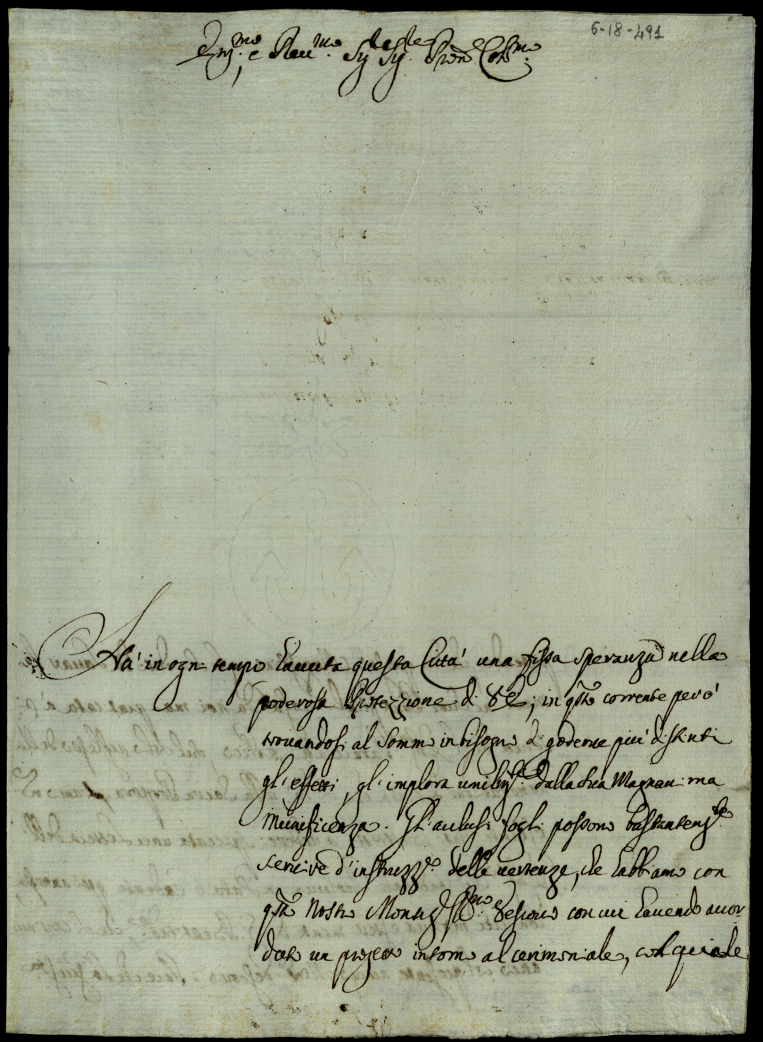 6-18-491
Em.mo e Reu.mo Sig.r Sig.r Pron.e Col.mo
Hà in ogni tempo hauuta questa Città una fissa speranza nella
poderosa Protezzione di VE; in q.to corrente però
trouandosi al sommo in bisogno di goderne più distinti
gl'effetti, gl'implora umilm.te dalla sua Magnanima
Munificenza. Gl'anlusi fogli possono bastantem.te
seruire d'instruzz.e delle uertenze, che habbiamo con
q.to Nostro Monsig.r Ill.mo Vescouo con cui hauendo accor
dato un progetto intorno al cerimoniale, col quale